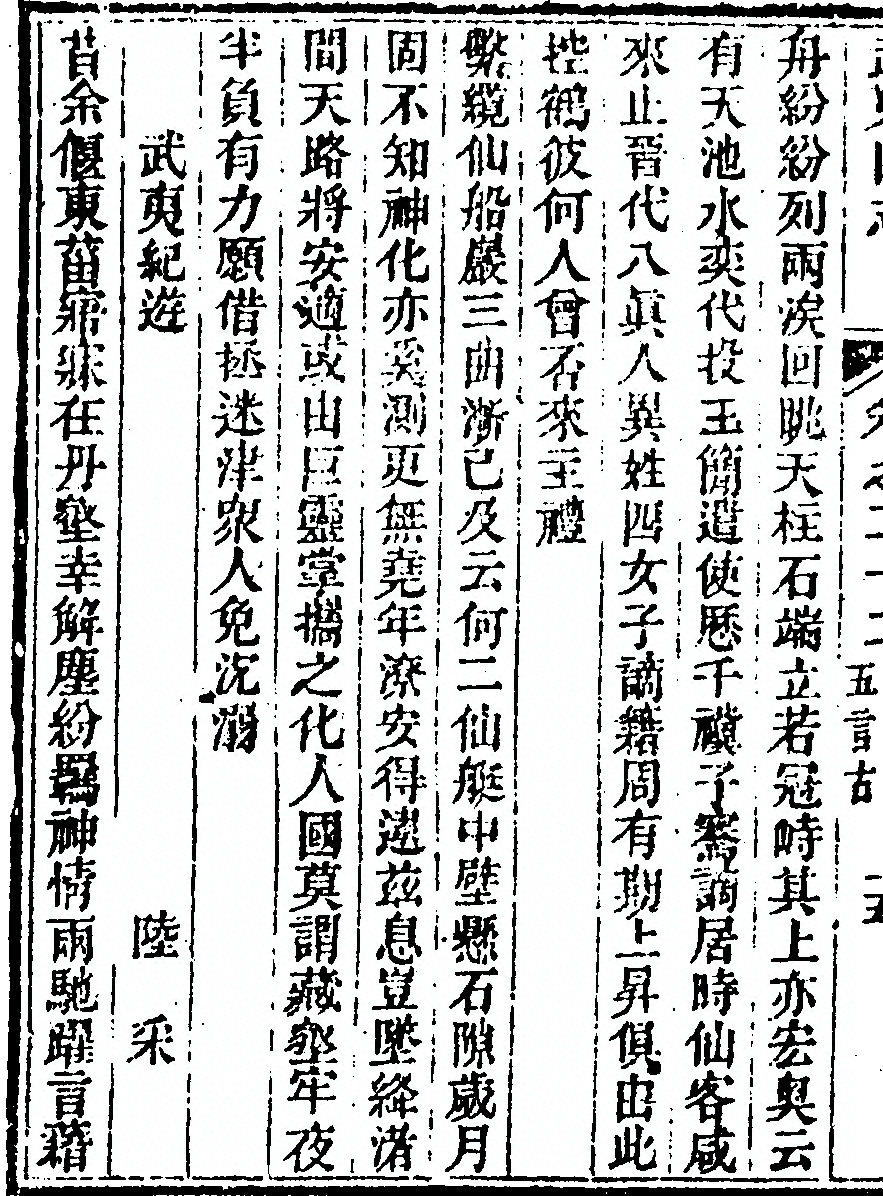 卷之二十二 五言古 十五
舟紛紛列兩涘回眺天柱石端立若冠畤其上亦宏奥云
有天池水奕代投玉簡遣使歷千禩子騫謫居時仙客咸
來止晉代八眞人異姓四女子謫籍周有期上昇俱由此
控鶴彼何人曾否來主禮
繫纜仙船巖三曲漸已及云何二仙艇中壁懸石隙歲月
固不知神化亦奚測更無堯年潦安得遠茲息豈墜絳渚
間天路將安適或由巨靈掌攜之化人國莫謂藏壑牢夜
半負有力願借拯迷津衆人免沉溺
武夷紀遊 陸采
昔余偃東菑寤寐在丹壑幸解塵紛羈神情兩馳躍言藉